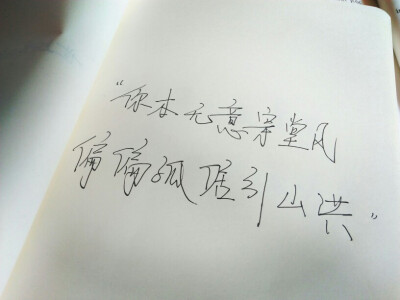 “你本无意穿堂风
偏偏孤倨引山洪”